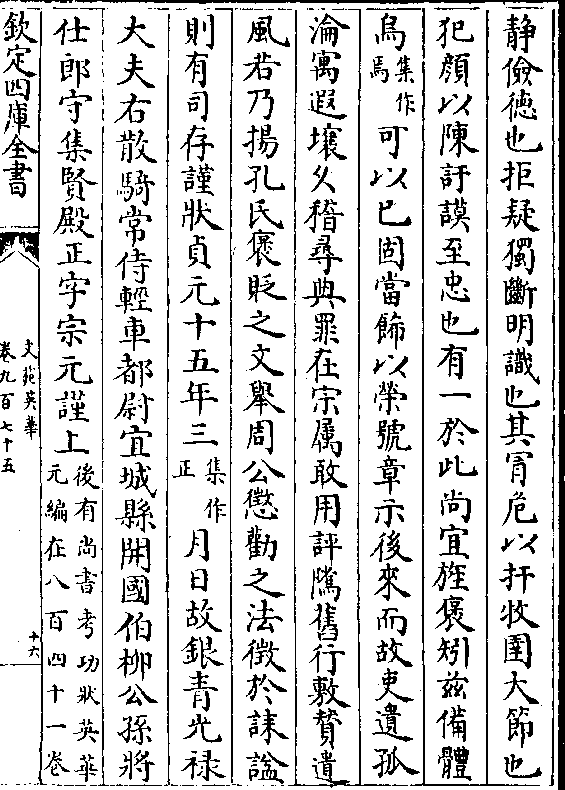 静儉徳也拒疑獨斷明識也其冐危以扞牧圉大節也
犯顔以陳訏謨至忠也有一於此尚宜旌褒矧兹備體
烏集作焉可以已固當飾以榮號章示後來而故吏遺孤
淪寓遐壤久稽尋典罪在宗属敢用評隲舊行敷賛遺
風若乃揚孔氏褒貶之文舉周公懲勸之法徴於誄諡
則有司存謹狀貞元十五年三集作正月日故銀青光禄
大夫右散騎常侍輕車都尉宜城縣開國伯柳公孫將
仕郎守集賢殿正字宗元謹上後有尚書考功狀英華元編在八百四十一卷
欽定四庫全書
文苑英華
卷九百七十五
十六